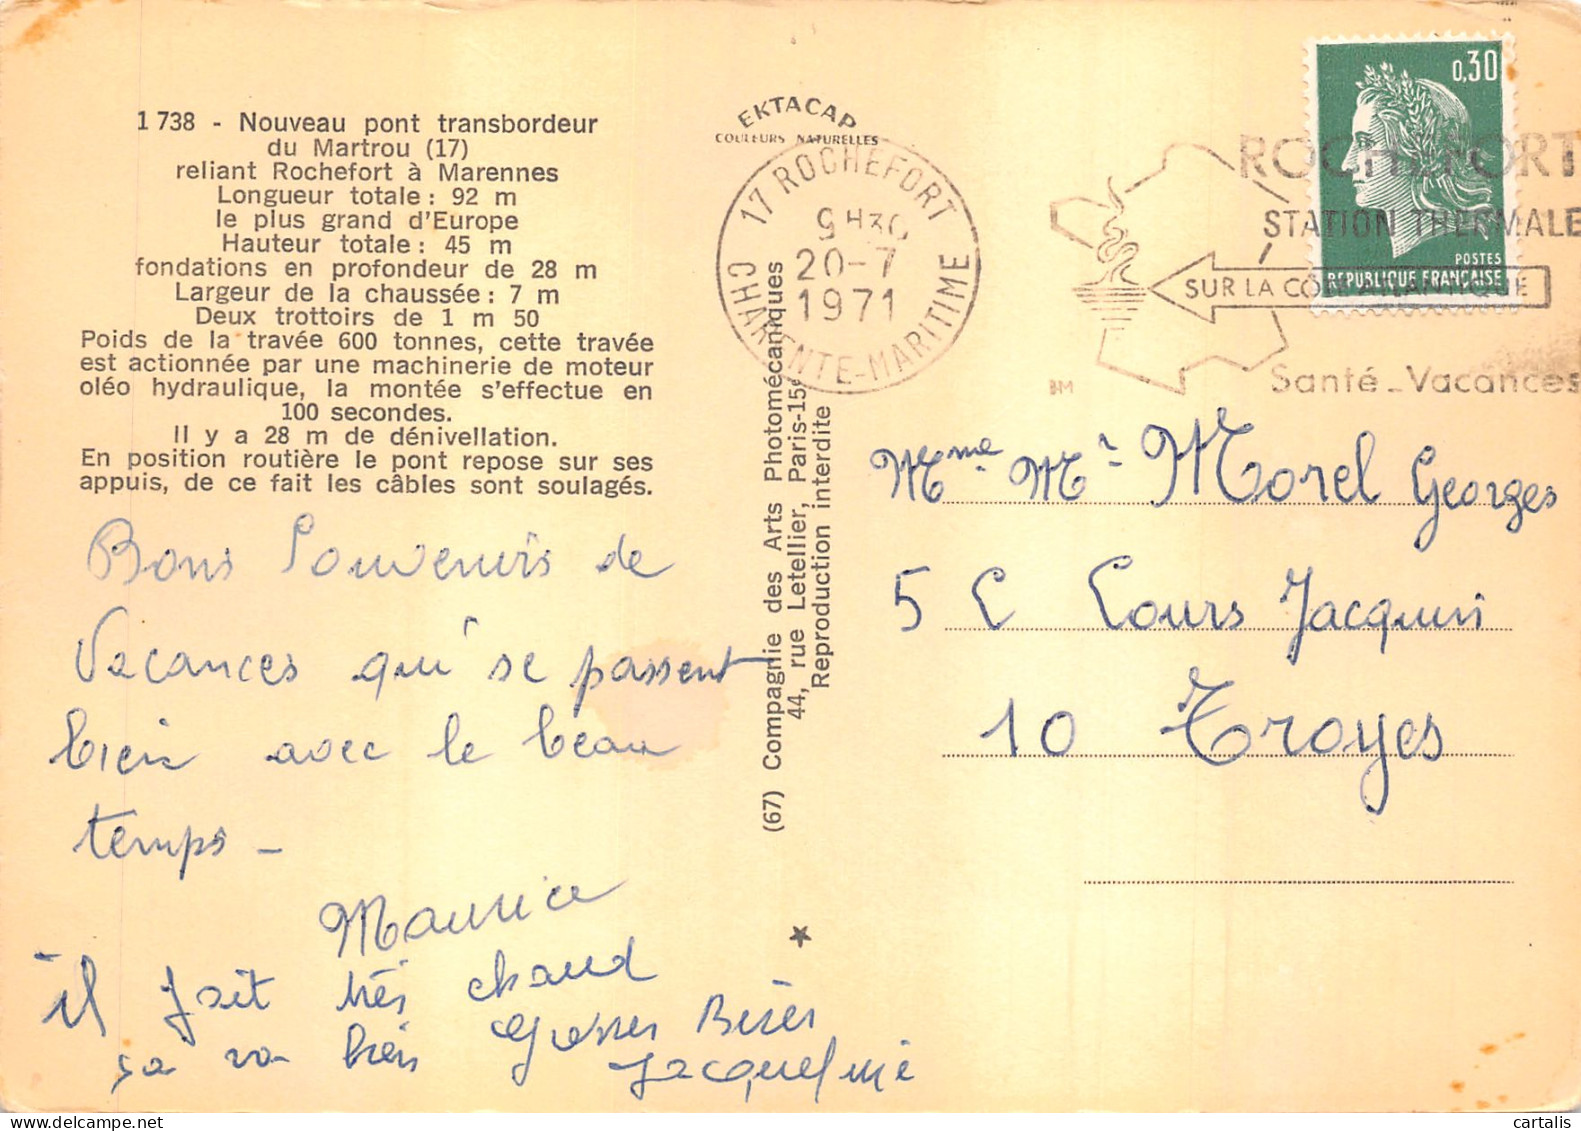 1 738 - Nouveau pont transbordeur
du Martrou (17)
reliant Rochefort à Marennes
Longueur totale : 92 m
le plus grand d'Europe
Hauteur totale : 45 m
fondations en profondeur de 28 m
Largeur de la chaussée : 7 m
Deux trottoirs de 1 m 50
Poids de la travée 600 tonnes, cette travée
est actionnée par une machinerie de moteur
oléo hydraulique, la montée s'effectue en
100 secondes.
Il y a 28 m de dénivellation.
En position routière le pont repose sur ses
appuis, de ce fait les câbles sont soulagés.
Bons Souvenirs de
Vacances qui se passent
bien avec le beau
temps -
Maurice
il fait très chaud
ça va bien Grosses Bises
Jacqueline
EKTACAP
COULEURS NATURELLES
(67) Compagnie des Arts Photomécaniques
44, rue Letellier, Paris-15e
Reproduction interdite
17 ROCHEFORT
9H30
20-7
1971
CHARENTE-MARITIME
ROCHEFORT
STATION THERMALE
SUR LA CÔTE ATLANTIQUE
Santé - Vacances
BM
0,30
POSTES
REPUBLIQUE FRANÇAISE
Mme Mr Morel Georges
5 C Cours Jacquin
10 Troyes
cartalis